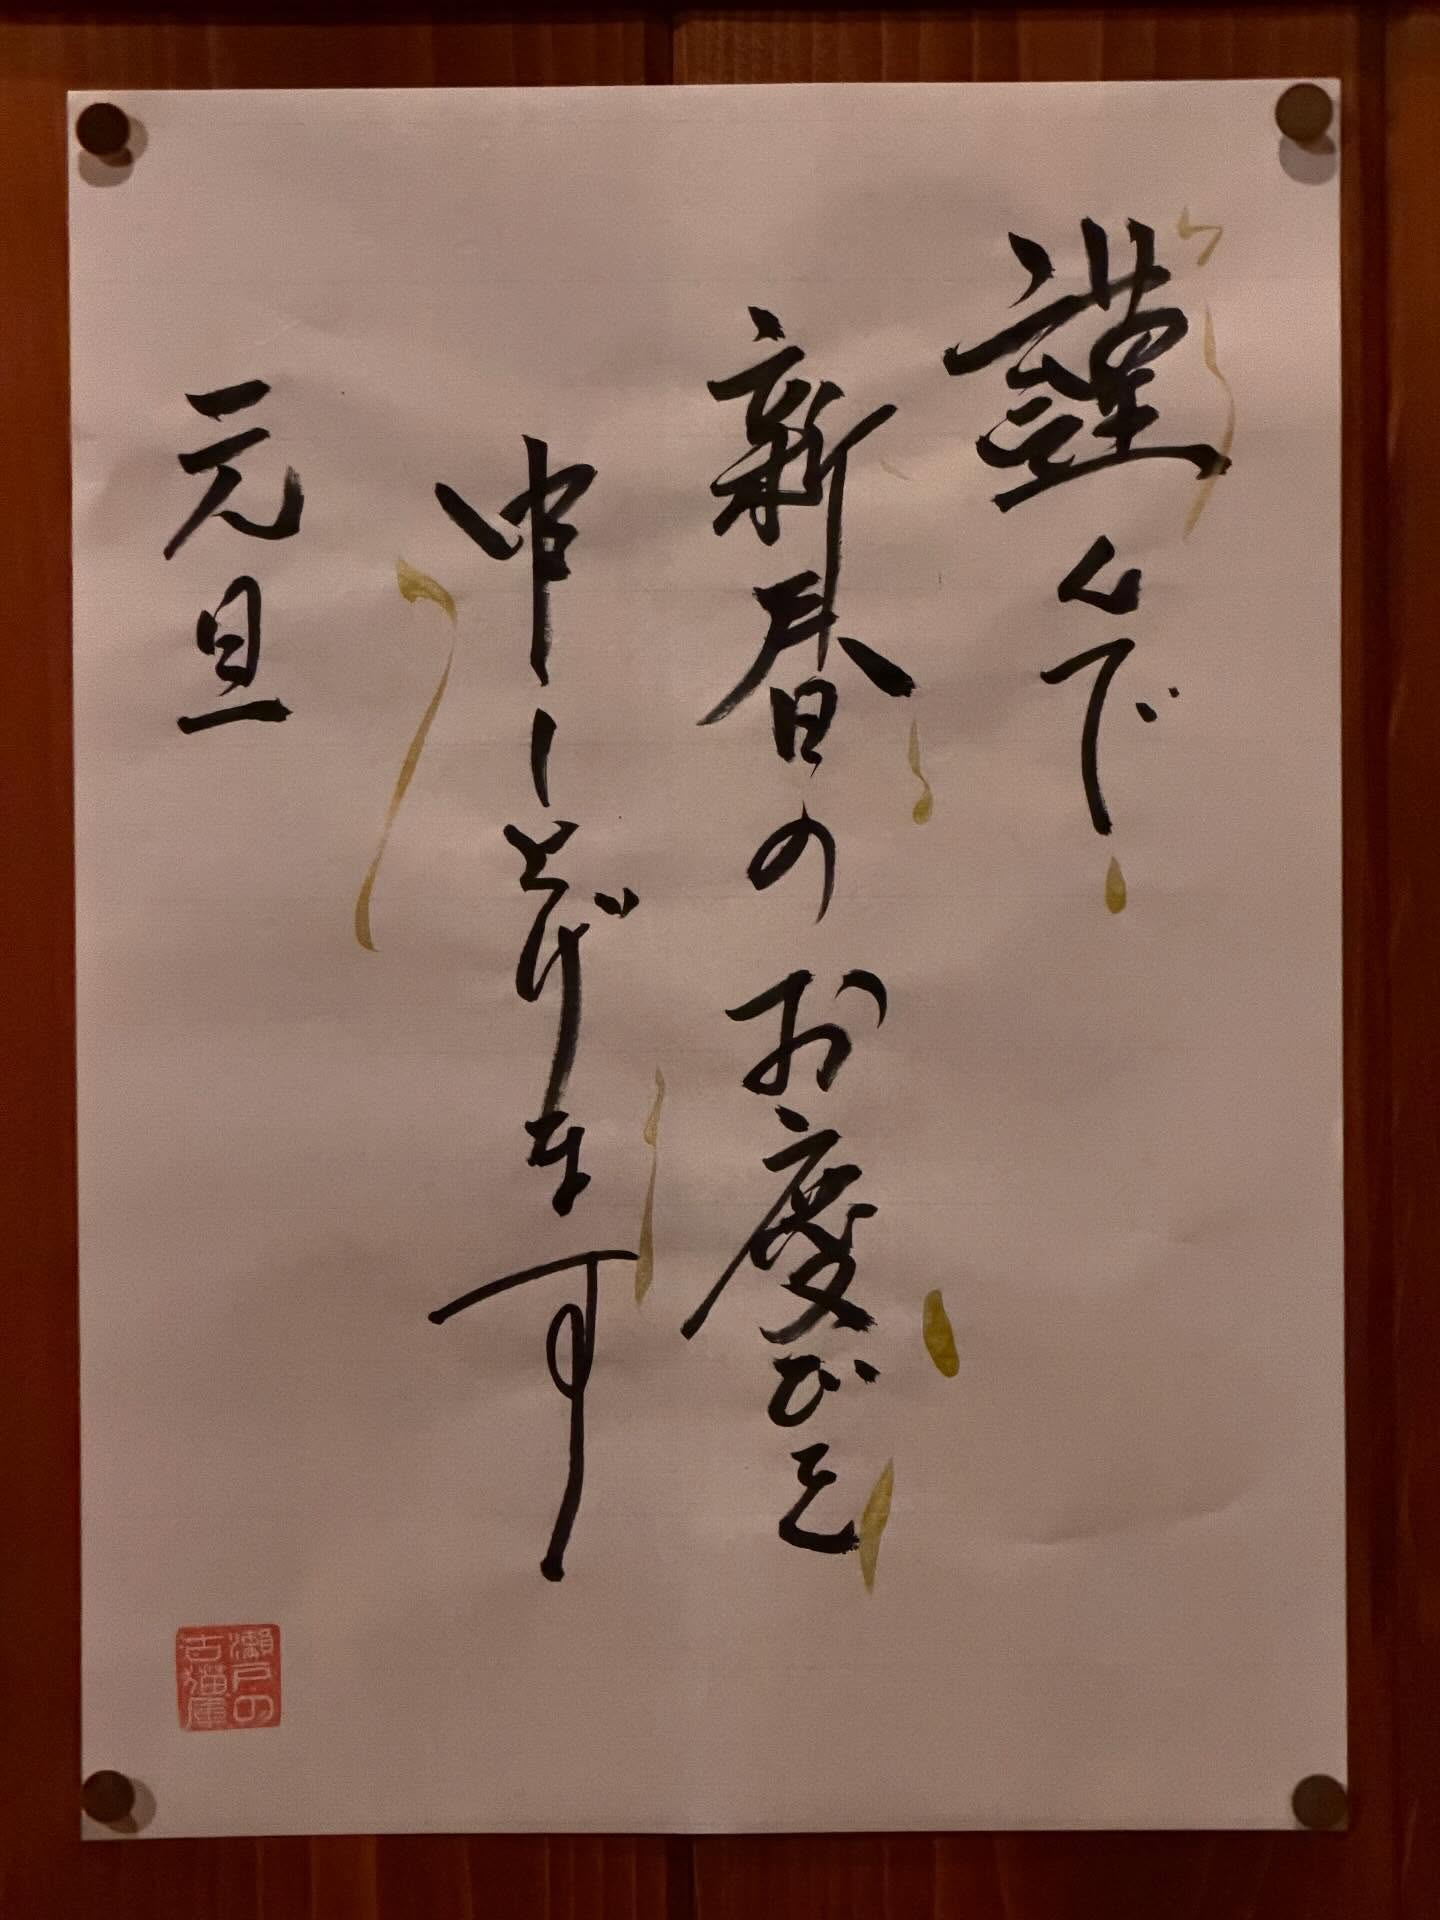 謹んで
新春のお慶びを
申し上げます
元旦
瀬戸の
古猫庫